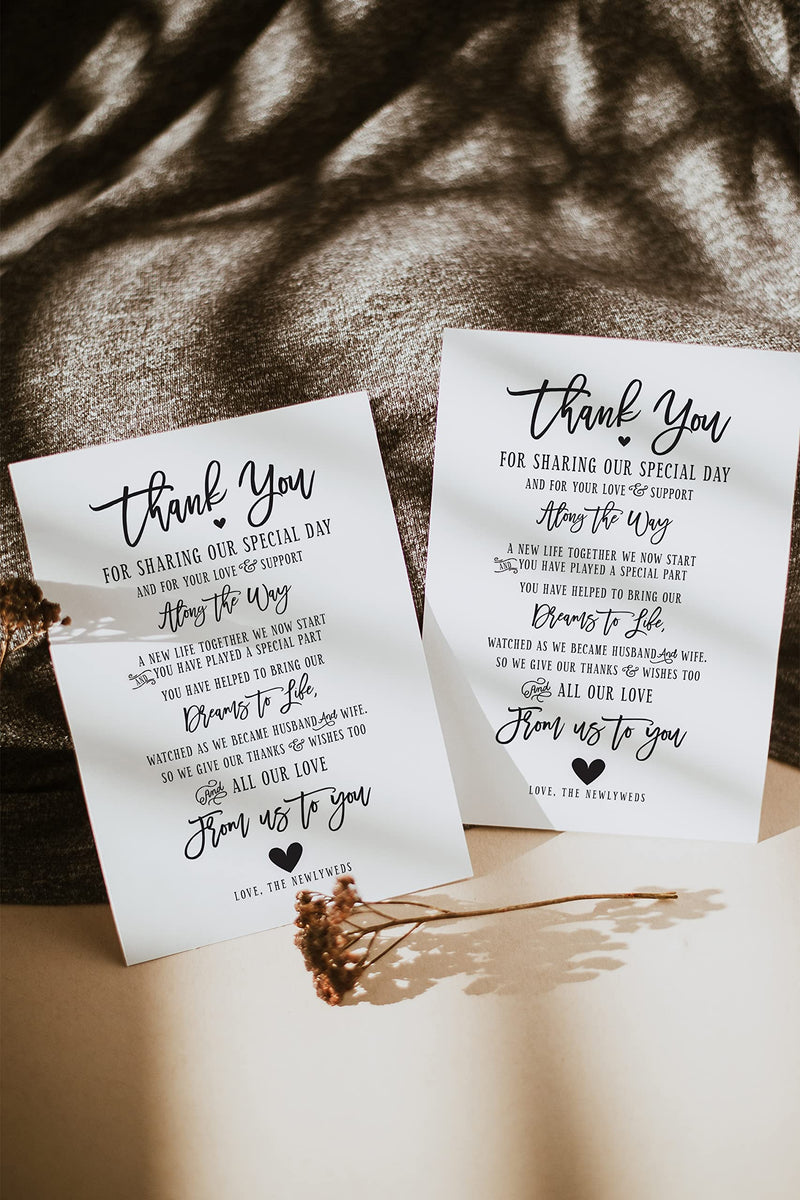 Thank You
FOR SHARING OUR SPECIAL DAY
AND FOR YOUR LOVE & SUPPORT
Along the Way
A NEW LIFE TOGETHER WE NOW START
AND YOU HAVE PLAYED A SPECIAL PART
YOU HAVE HELPED TO BRING OUR
Dreams to Life,
WATCHED AS WE BECAME HUSBAND And WIFE.
SO WE GIVE OUR THANKS & WISHES TOO
And ALL OUR LOVE
From us to you
LOVE, THE NEWLYWEDS
Thank You
FOR SHARING OUR SPECIAL DAY
AND FOR YOUR LOVE & SUPPORT
Along the Way
A NEW LIFE TOGETHER WE NOW START
AND YOU HAVE PLAYED A SPECIAL PART
YOU HAVE HELPED TO BRING OUR
Dreams to Life,
WATCHED AS WE BECAME HUSBAND And WIFE.
SO WE GIVE OUR THANKS & WISHES TOO
And ALL OUR LOVE
From us to you
LOVE, THE NEWLYWEDS